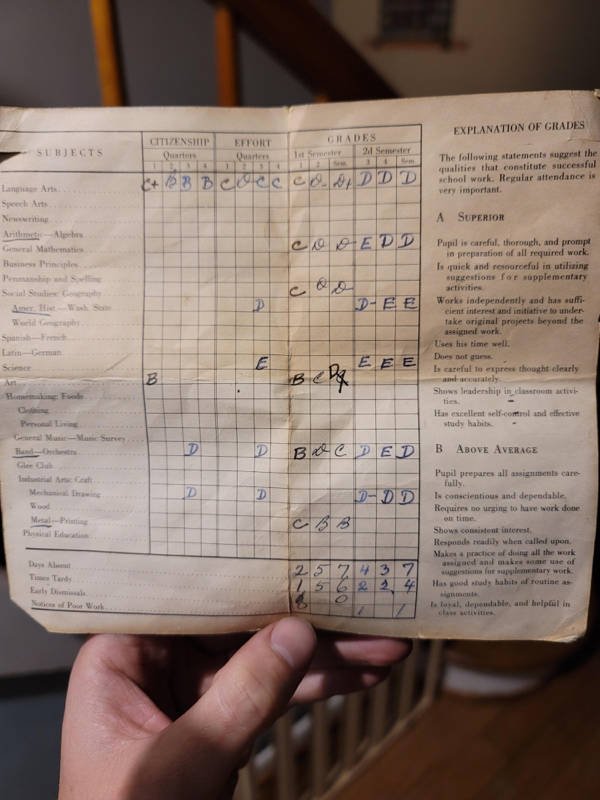 CITIZENSHIP EFFORT GRADES
SUBJECTS Quarters Quarters 1st Semester 2d Semester
1 2 3 4 1 2 3 4 1 2 Sem. 3 4 Sem.
Language Arts C+ B B B C D C C C D- D+ D D D
Speech Arts
Newswriting
Arithmetic—Algebra
General Mathematics C D D- E D D
Business Principles
Penmanship and Spelling
Social Studies: Geography C D D-
Amer. Hist—Wash. State D D- E E
World Geography
Spanish—French
Latin—German
Science E E E E
Art B B C
Homemaking: Foods
Clothing
Personal Living
General Music—Music Survey
Band—Orchestra D D B D C D E D
Glee Club
Industrial Arts: Craft
Mechanical Drawing D D D- D D
Wood
Metal—Printing C B B
Physical Education
Days Absent 2 5 7 4 3 7
Times Tardy 1 5 6 2 2 4
Early Dismissals 0
Notices of Poor Work 1 1
EXPLANATION OF GRADES
The following statements suggest the
qualities that constitute successful
school work. Regular attendance is
very important.
A SUPERIOR
Pupil is careful, thorough, and prompt
in preparation of all required work.
Is quick and resourceful in utilizing
suggestions for supplementary
activities.
Works independently and has suffi-
cient interest and initiative to under-
take original projects beyond the
assigned work.
Uses his time well.
Does not guess.
Is careful to express thought clearly
and accurately.
Shows leadership in classroom activi-
ties.
Has excellent self-control and effective
study habits.
B ABOVE AVERAGE
Pupil prepares all assignments care-
fully.
Is conscientious and dependable.
Requires no urging to have work done
on time.
Shows consistent interest.
Responds readily when called upon.
Makes a practice of doing all the work
assigned and makes some use of
suggestions for supplementary work.
Has good study habits of routine as-
signments.
Is loyal, dependable, and helpful in
class activities.